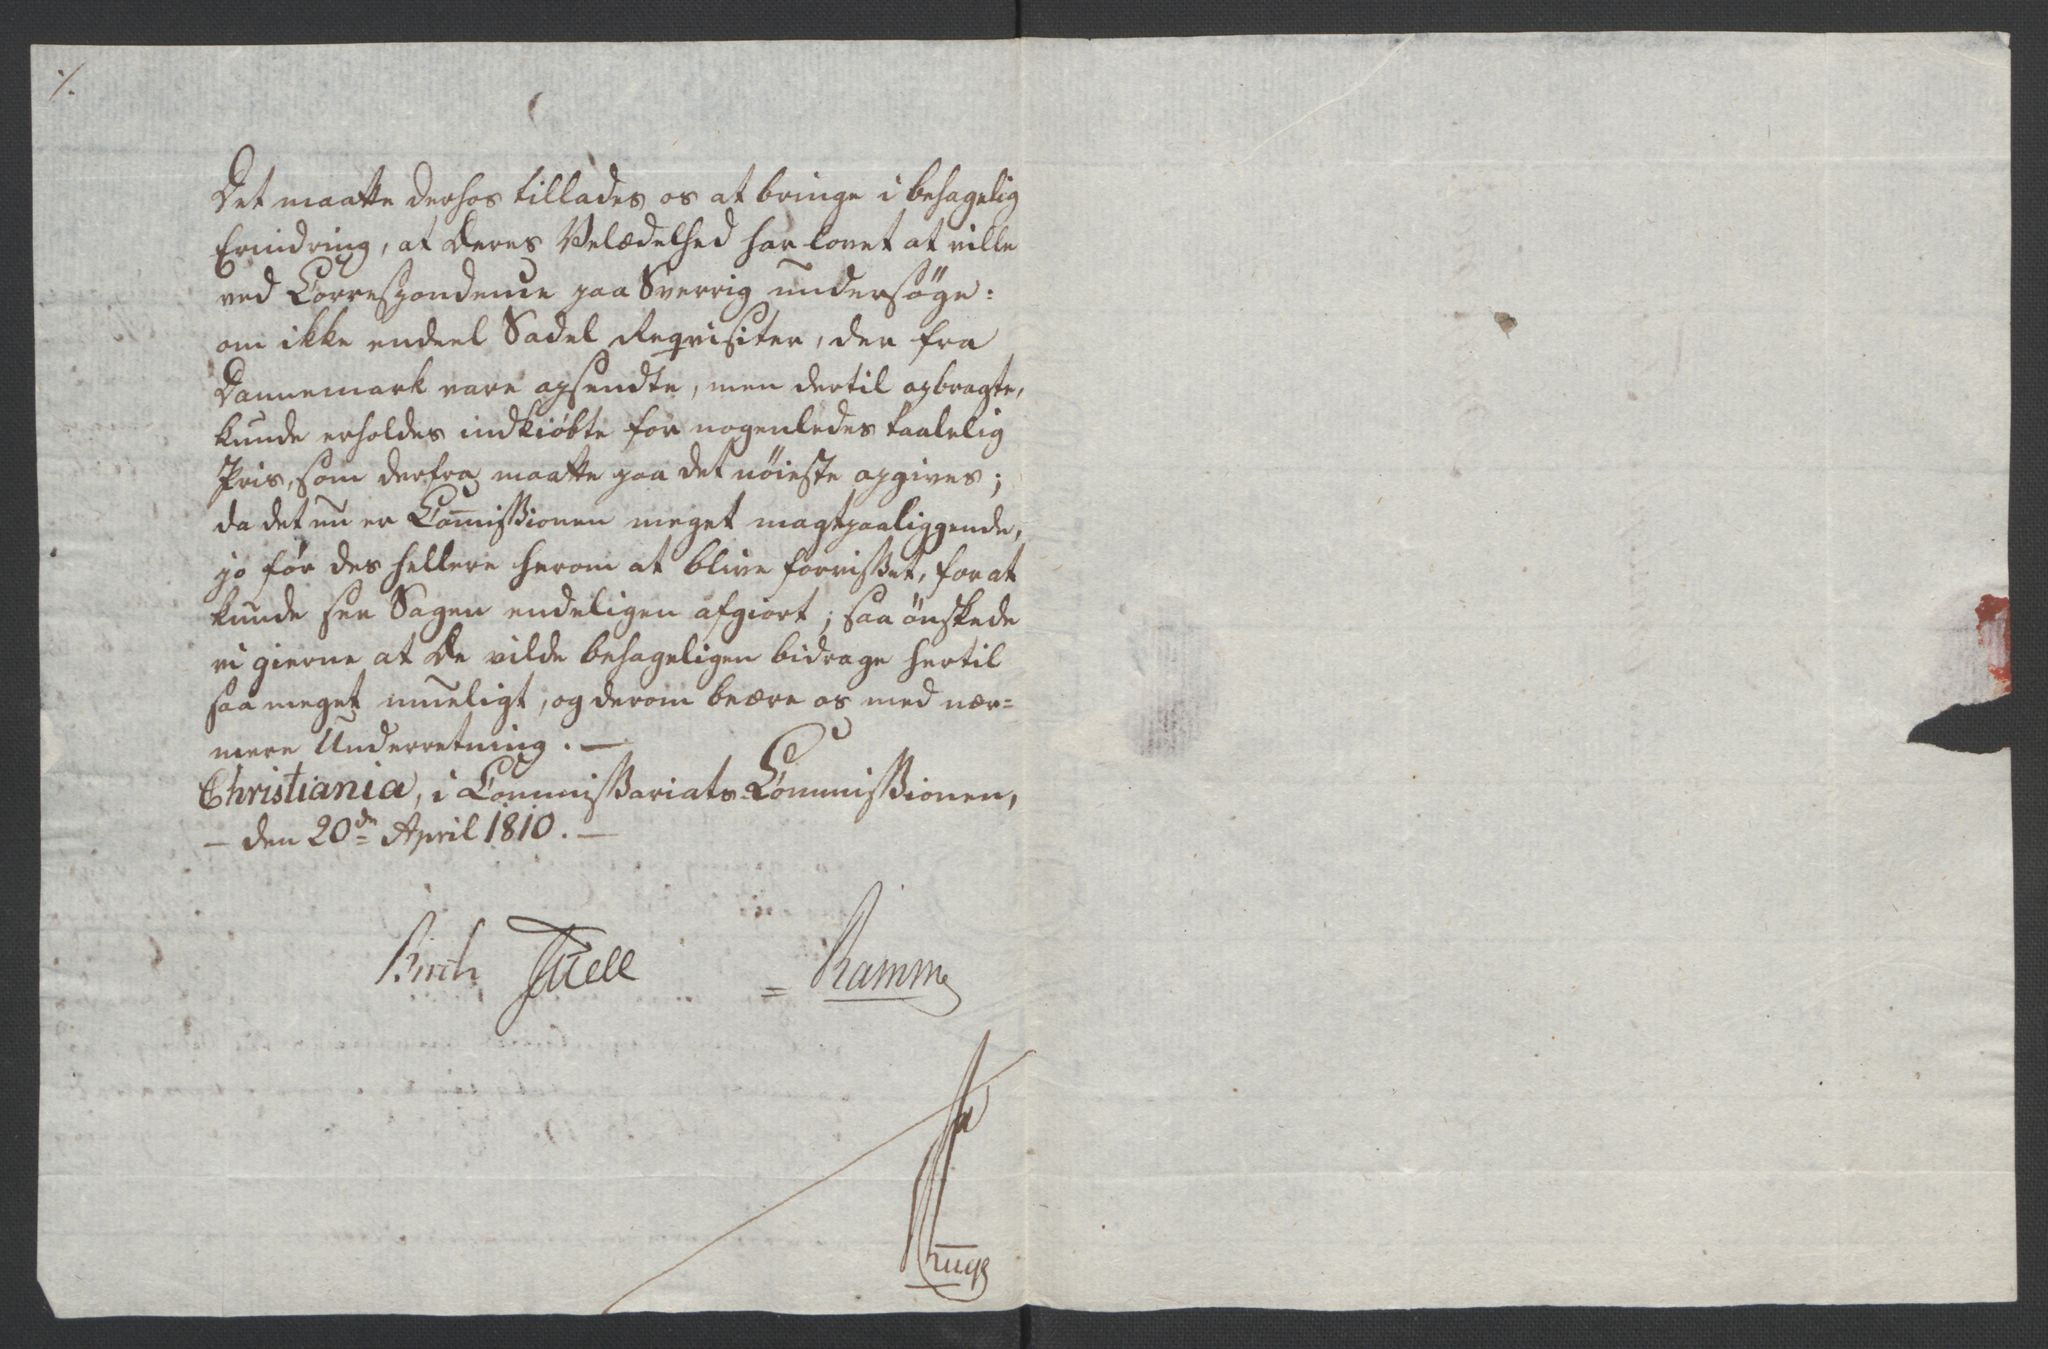 ./.
Det maatte derhos tillades os at bringe i behagelig
Erindring, at Deres Velædelhed har lovet at ville
ved Correspondence paa Sverrig undersöge:
om ikke endeel Sadel Reqvisiter, der fra
Dannemark vare opsendte, men dertil opbragte,
kunde erholdes indkiöbte for nogenledes taalelig
Pris, som derfra maatte paa det nöieste opgives;
da det nu er Com̅issionen meget magtpaaliggende,
jo för des hellere herom at blive forvisset, for at
kunde see Sagen endeligen afgiort; saa önskede
vi gierne at De vilde behageligen bidrage hertil
saa meget mueligt, og derom beære os med nær=
mere Underretning. —
Christiania, i Commissariats Commissionen,
— den 20de April 1810. —
Birch Juell = Ramm